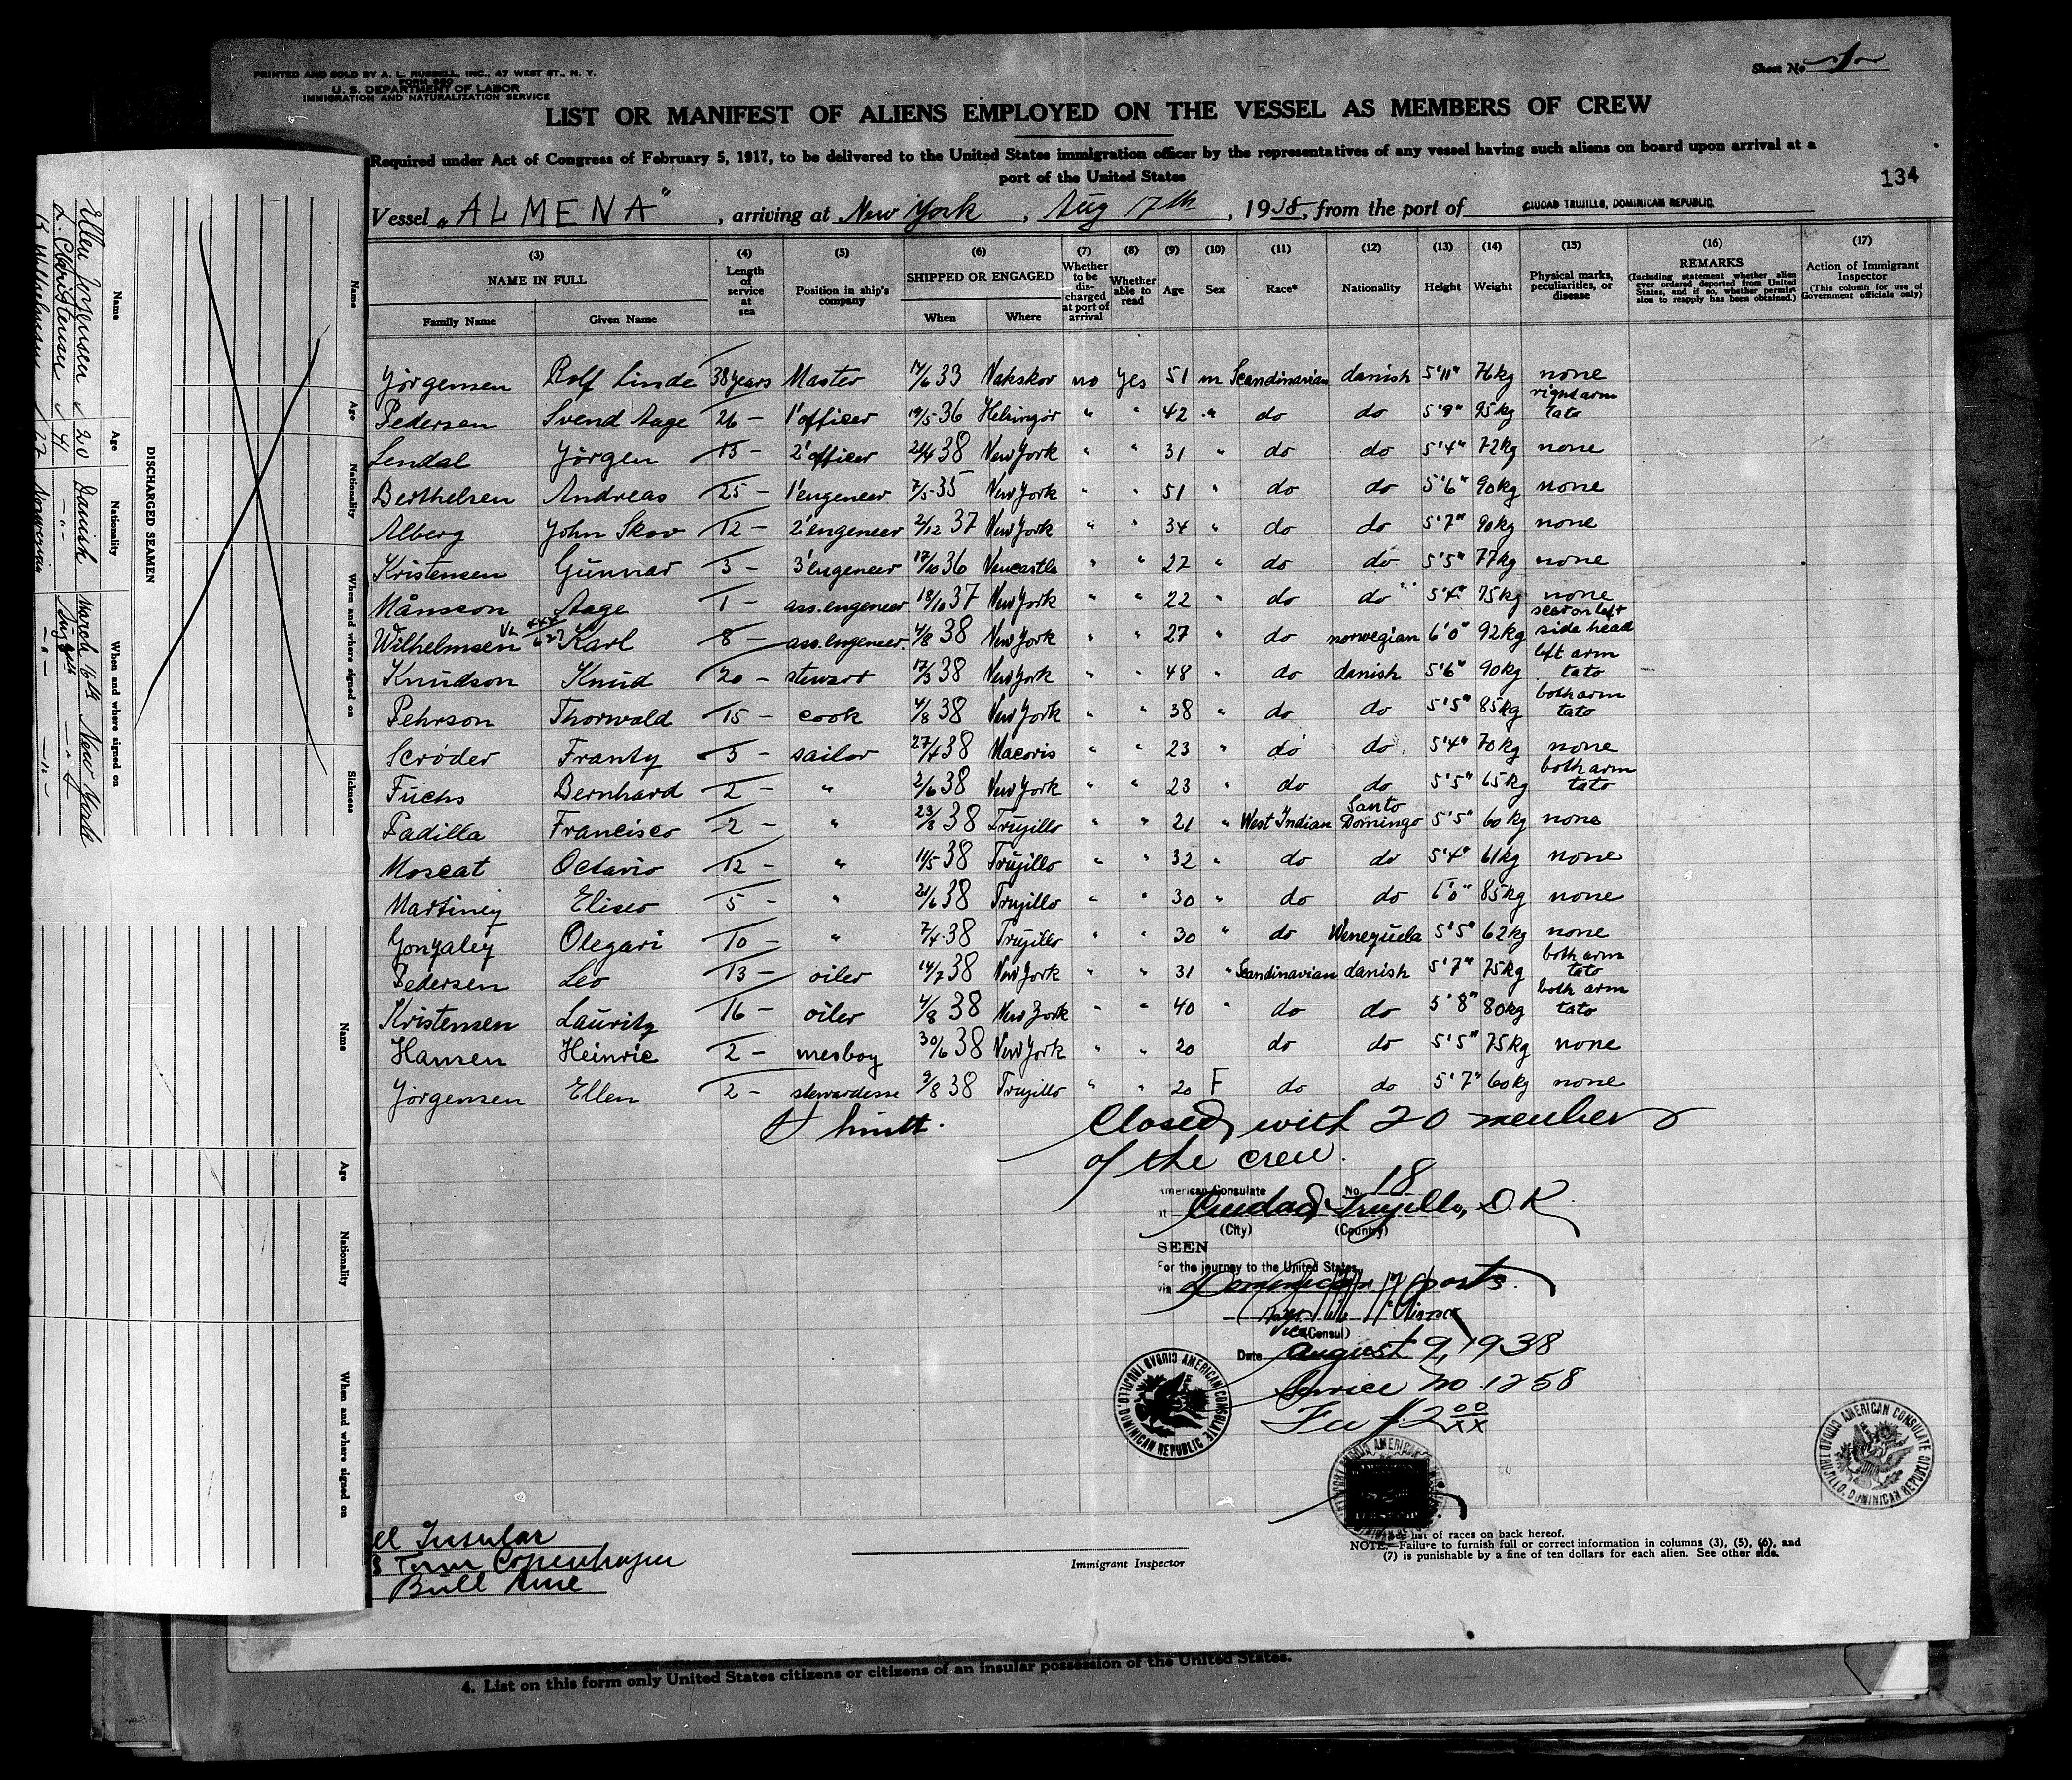 PRINTED AND SOLD BY A. L. RUSSELL, INC., 47 WEST ST., N. Y.
FORM 680
U. S. DEPARTMENT OF LABOR
IMMIGRATION AND NATURALIZATION SERVICE
Sheet No. 1
LIST OR MANIFEST OF ALIENS EMPLOYED ON THE VESSEL AS MEMBERS OF CREW
Required under Act of Congress of February 5, 1917, to be delivered to the United States immigration officer by the representatives of any vessel having such aliens on board upon arrival at a
port of the United States
134
Vessel "ALMENA", arriving at New York, Aug 17th, 1938, from the port of CIUDAD TRUJILLO, DOMINICAN REPUBLIC.
(3) (4) (5) (6) (7) (8) (9) (10) (11) (12) (13) (14) (15) (16) (17)
NAME IN FULL
Family Name Given Name
Length of service at sea
Position in ship's company
SHIPPED OR ENGAGED
When Where
Whether to be discharged at port of arrival
Whether able to read
Age Sex Race* Nationality Height Weight
Physical marks, peculiarities, or disease
REMARKS
(Including statement whether alien ever ordered deported from United States, and if so, whether permission to reapply has been obtained.)
Action of Immigrant Inspector
(This column for use of Government officials only)
Jörgensen Rolf Linde 38 years Master 14/6 33 Nakskov no yes 51 m Scandinavian danish 5'11" 76kg none
Pedersen Svend Aage 26 - 1'officer 19/5-36 Helsingör " " 42 " do do 5'9" 95kg right arm tato
Lendal Jörgen 15 - 2'officer 21/4 38 New York " " 31 " do do 5'4" 72kg none
Berthelsen Andreas 25 - 1'engeneer 7/5-35 New York " " 51 " do do 5'6" 90kg none
Alberg John Skov 12 - 2'engeneer 2/12 37 New York " " 34 " do do 5'7" 90kg none
Kristensen Gunnar 3 - 3'engeneer 17/10 36 Newcastle " " 27 " do do 5'5" 77kg none
Månsson Aage 1 - ass.engeneer 18/10 37 New York " " 22 " do do 5'4" 75kg none
Wilhelmsen Karl 8 - ass.engeneer. 4/8 38 New York " " 27 " do norwegian 6'0" 92kg scar on left side head
Knudson Knud 20 - stewart 17/3 38 New York " " 48 " do danish 5'6" 90kg left arm tato
Pehrson Thorwald 15 - cook 4/8 38 New York " " 38 " do do 5'5" 85kg both arm tato
Scröder Frantz 3 - sailor 27/4 38 Macoris " " 23 " do do 5'4" 70kg none
Fuchs Bernhard 2 - " 2/6 38 New York " " 23 " do do 5'5" 65kg both arm tato
Padilla Francisco 2 - " 23/3 38 Trujillo " " 21 " West Indian Santo Domingo 5'5" 60kg none
Moscat Octavio 12 - " 11/5-38 Trujillo " " 32 " do do 5'4" 61kg none
Martinez Eliseo 5 - " 21/6 38 Trujillo " " 30 " do do 6'0" 85kg none
Gonzalez Olegari 10 - " 7/4-38 Trujillo " " 30 " do Wenezuela 5'5" 62kg none
Pedersen Leo 13 - oiler 14/7 38 New York " " 31 " Scandinavian danish 5'7" 75kg both arm tato
Kristensen Lauritz 16 - oiler 4/8 38 New York " " 40 " do do 5'8" 80kg both arm tato
Hansen Heinric 2 - mesboy 30/6 38 New York " " 20 do do 5'5" 75kg none
Jörgensen Ellen 2 - stewardesse 9/8 38 Trujillo " " 20 F do do 5'7" 60kg none
Closed with 20 members
of the crew.
American Consulate No. 18
at Ciudad Trujillo, D.R.
(City) (Country)
SEEN
For the journey to the United States,
via Dominican ports.
Vice (Consul)
Date August 9, 1938
Service No. 1258
Fee $2 00/xx
AMERICAN CONSULATE CIUDAD TRUJILLO, DOMINICAN REPUBLIC
AMERICAN CONSULATE CIUDAD TRUJILLO, DOMINICAN REPUBLIC
el Insular
Copenhagen
Bull Line
Immigrant Inspector
*See list of races on back hereof.
NOTE.—Failure to furnish full or correct information in columns (3), (5), (6), and
(7) is punishable by a fine of ten dollars for each alien. See other side.
4. List on this form only United States citizens or citizens of an insular possession of the United States.
DISCHARGED SEAMEN
Name Age Nationality When and where signed on
Name Age Nationality When and where signed on Sickness
Ellen Jörgensen 20 Danish March 16th New York
L. Christensen 41 -"- Aug 4th -"-
K Wilhelmsen 27 Norwegian -"- -"-
Name Age Nationality When and where signed on